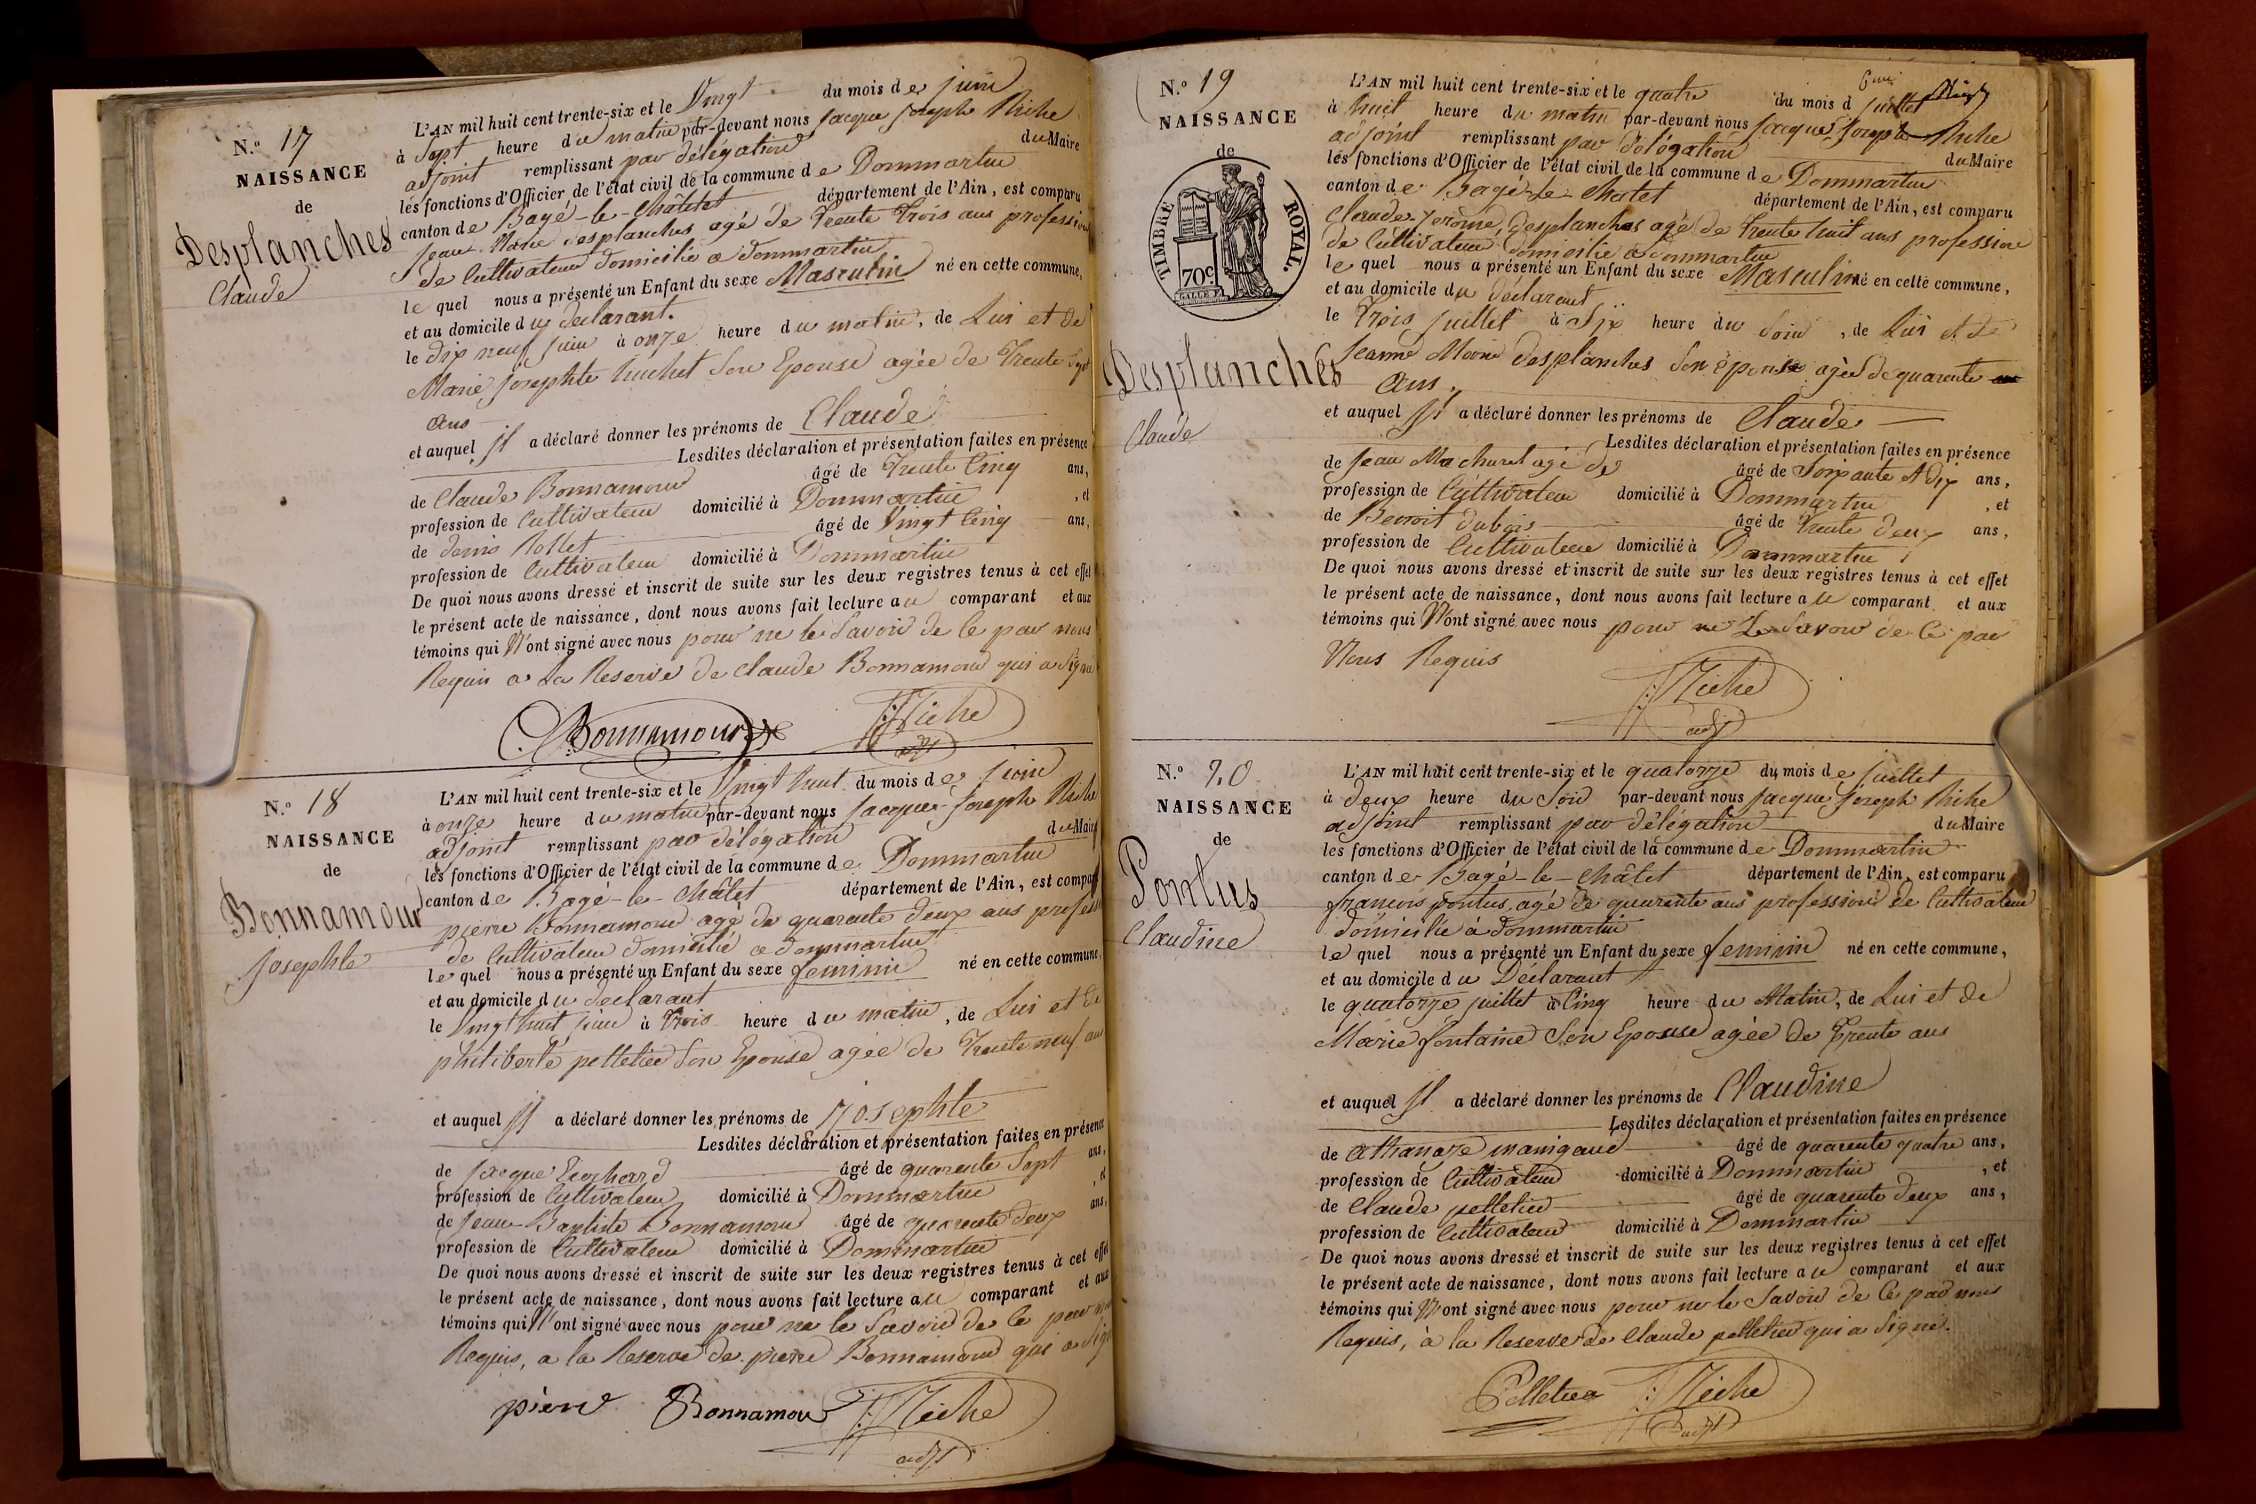 N.° 17
NAISSANCE
de
Desplanches
Claude
L'AN mil huit cent trente-six et le Vingt du mois de juin
à Sept heure du matin par-devant nous Jacque Joseph Niche
adjoint remplissant par délégation du Maire
les fonctions d'Officier de l'état civil de la commune de Dommartin
canton de Bagé-le-Châtel département de l'Ain, est comparu
Jean Marie desplanches agé de trente trois ans profession
de Cultivateur domicilié a dommartin
le quel nous a présenté un Enfant du sexe Masculin né en cette commune,
et au domicile du declarant.
le dix neuf juin à onze heure du matin, de Lui et de
Marie josephte huchet Son Epouse agée de trente Sept
ans
et auquel jl a déclaré donner les prénoms de Claude
Lesdites déclaration et présentation faites en présence
de Claude Bonnamour âgé de trente Cinq ans,
profession de Cultivateur domicilié à Dommartin, et
de denis Rollet âgé de Vingt Cinq ans,
profession de Cultivateur domicilié à Dommartin
De quoi nous avons dressé et inscrit de suite sur les deux registres tenus à cet effet
le présent acte de naissance, dont nous avons fait lecture au comparant et aux
témoins qui N'ont signé avec nous pour ne le Savoir de Ce par nous
Requis a La Reserve de Claude Bonnamour qui a Signé
Bonnamour JJ Niche
adjt
N.° 18
NAISSANCE
de
Bonnamour
Josephte
L'AN mil huit cent trente-six et le Vingt huit du mois de juin
à onze heure du matin par-devant nous Jacque Joseph Niche
adjoint remplissant par délégation du Maire
les fonctions d'Officier de l'état civil de la commune de Dommartin
canton de Bagé-le-Châtel département de l'Ain, est comparu
pierre Bonnamour agé de quarante deux ans profession
de Cultivateur domicilié a dommartin
le quel nous a présenté un Enfant du sexe feminin né en cette commune,
et au domicile du declarant
le Vingt huit juin à trois heure du matin, de Lui et de
philiberte pelletier Son Epouse agée de Trente neuf ans
et auquel jl a déclaré donner les prénoms de Josephte
Lesdites déclaration et présentation faites en présence
de Jacque âgé de quarente Sept ans,
profession de Cultivateur domicilié à Dommartin, et
de Jean-Baptiste Bonnamour âgé de quarente deux ans,
profession de Cultivateur domicilié à Dommartin
De quoi nous avons dressé et inscrit de suite sur les deux registres tenus à cet effet
le présent acte de naissance, dont nous avons fait lecture au comparant et aux
témoins qui N'ont signé avec nous pour ne le Savoir de Ce par nous
Requis, a la Reserve de pierre Bonnamour qui a Signé
pierre Bonnamour JJ Niche
adjt
N.° 19
NAISSANCE
de
TIMBRE ROYAL.
70 c.
Desplanches
Claude
L'AN mil huit cent trente-six et le quatre du mois d juillet
à huit heure du matin par-devant nous Jacque Joseph Niche
adjoint remplissant par délégation du Maire
les fonctions d'Officier de l'état civil de la commune de Dommartin
canton de Bagé-le-Chatel département de l'Ain, est comparu
Claude-Jerome, desplanches agé de trente huit ans profession
de Cultivateur domicilié a dommartin
le quel nous a présenté un Enfant du sexe Masculin né en cette commune,
et au domicile du déclarant
le trois juillet à Six heure du Soir, de Lui et de
Jeanne Marie desplanches Son épouse agée de quarente
ans.
et auquel jl a déclaré donner les prénoms de Claude
Lesdites déclaration et présentation faites en présence
de Jean Machuret agé de âgé de Soixante et Dix ans,
profession de Cultivateur domicilié à Dommartin, et
de Benoit dubois âgé de trente deux ans,
profession de Cultivateur domicilié à Dommartin
De quoi nous avons dressé et inscrit de suite sur les deux registres tenus à cet effet
le présent acte de naissance, dont nous avons fait lecture au comparant et aux
témoins qui N'ont signé avec nous pour ne Le Savoir de Ce par
Nous Requis
JJ Niche
adjt
N.° 20
NAISSANCE
de
Pontus
Claudine
L'AN mil huit cent trente-six et le quatorze du mois de juillet
à deux heure du Soir par-devant nous Jacque Joseph Niche
adjoint remplissant par délégation du Maire
les fonctions d'Officier de l'état civil de la commune de Dommartin
canton de Bagé-le-Châtel département de l'Ain, est comparu
françois pontus, agé de quarente ans profession de Cultivateur
domicilié à dommartin
le quel nous a présenté un Enfant du sexe feminin né en cette commune,
et au domicile du Déclarant
le quatorze juillet à Cinq heure du Matin, de Lui et de
Marie fontaine Son Epouse agée de trente ans
et auquel jl a déclaré donner les prénoms de Claudine
Lesdites déclaration et présentation faites en présence
de athanaze manigaud âgé de quarente quatre ans,
profession de Cultivateur domicilié à Dommartin, et
de Claude pelletier âgé de quarente deux ans,
profession de Cultivateur domicilié à Dommartin
De quoi nous avons dressé et inscrit de suite sur les deux registres tenus à cet effet
le présent acte de naissance, dont nous avons fait lecture au comparant et aux
témoins qui N'ont signé avec nous pour ne le Savoir de Ce par nous
Requis, à la Reserve de Claude pelletier qui a Signé.
Pelletier JJ Niche
adjt